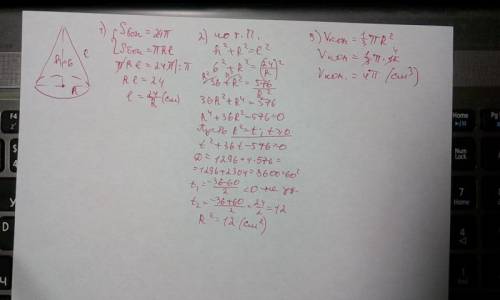 h=6
l
R
1) Sбок = 24π
Sбок = πRl
πRl = 24π | : π
Rl = 24
l = 24/R (см)
2) по т. П.
h² + R² = l²
6² + R² = (24/R)²
36 + R² = 576/R²
36R² + R⁴ = 576
R⁴ + 36R² - 576 = 0
Пусть R² = t, t > 0
t² + 36t - 576 = 0
D = 1296 + 4·576 =
= 1296 + 2304 = 3600 = 60²
t₁ = (-36-60)/2 < 0 - не уд.
t₂ = (-36+60)/2 = 24/2 = 12
R² = 12 (см²)
3) Vкон. = 1/3 πR²
Vкон. = 1/3 π·12 4
Vкон. = 4π (см³)
Home
PgUp
Num Lock
7 Home
4